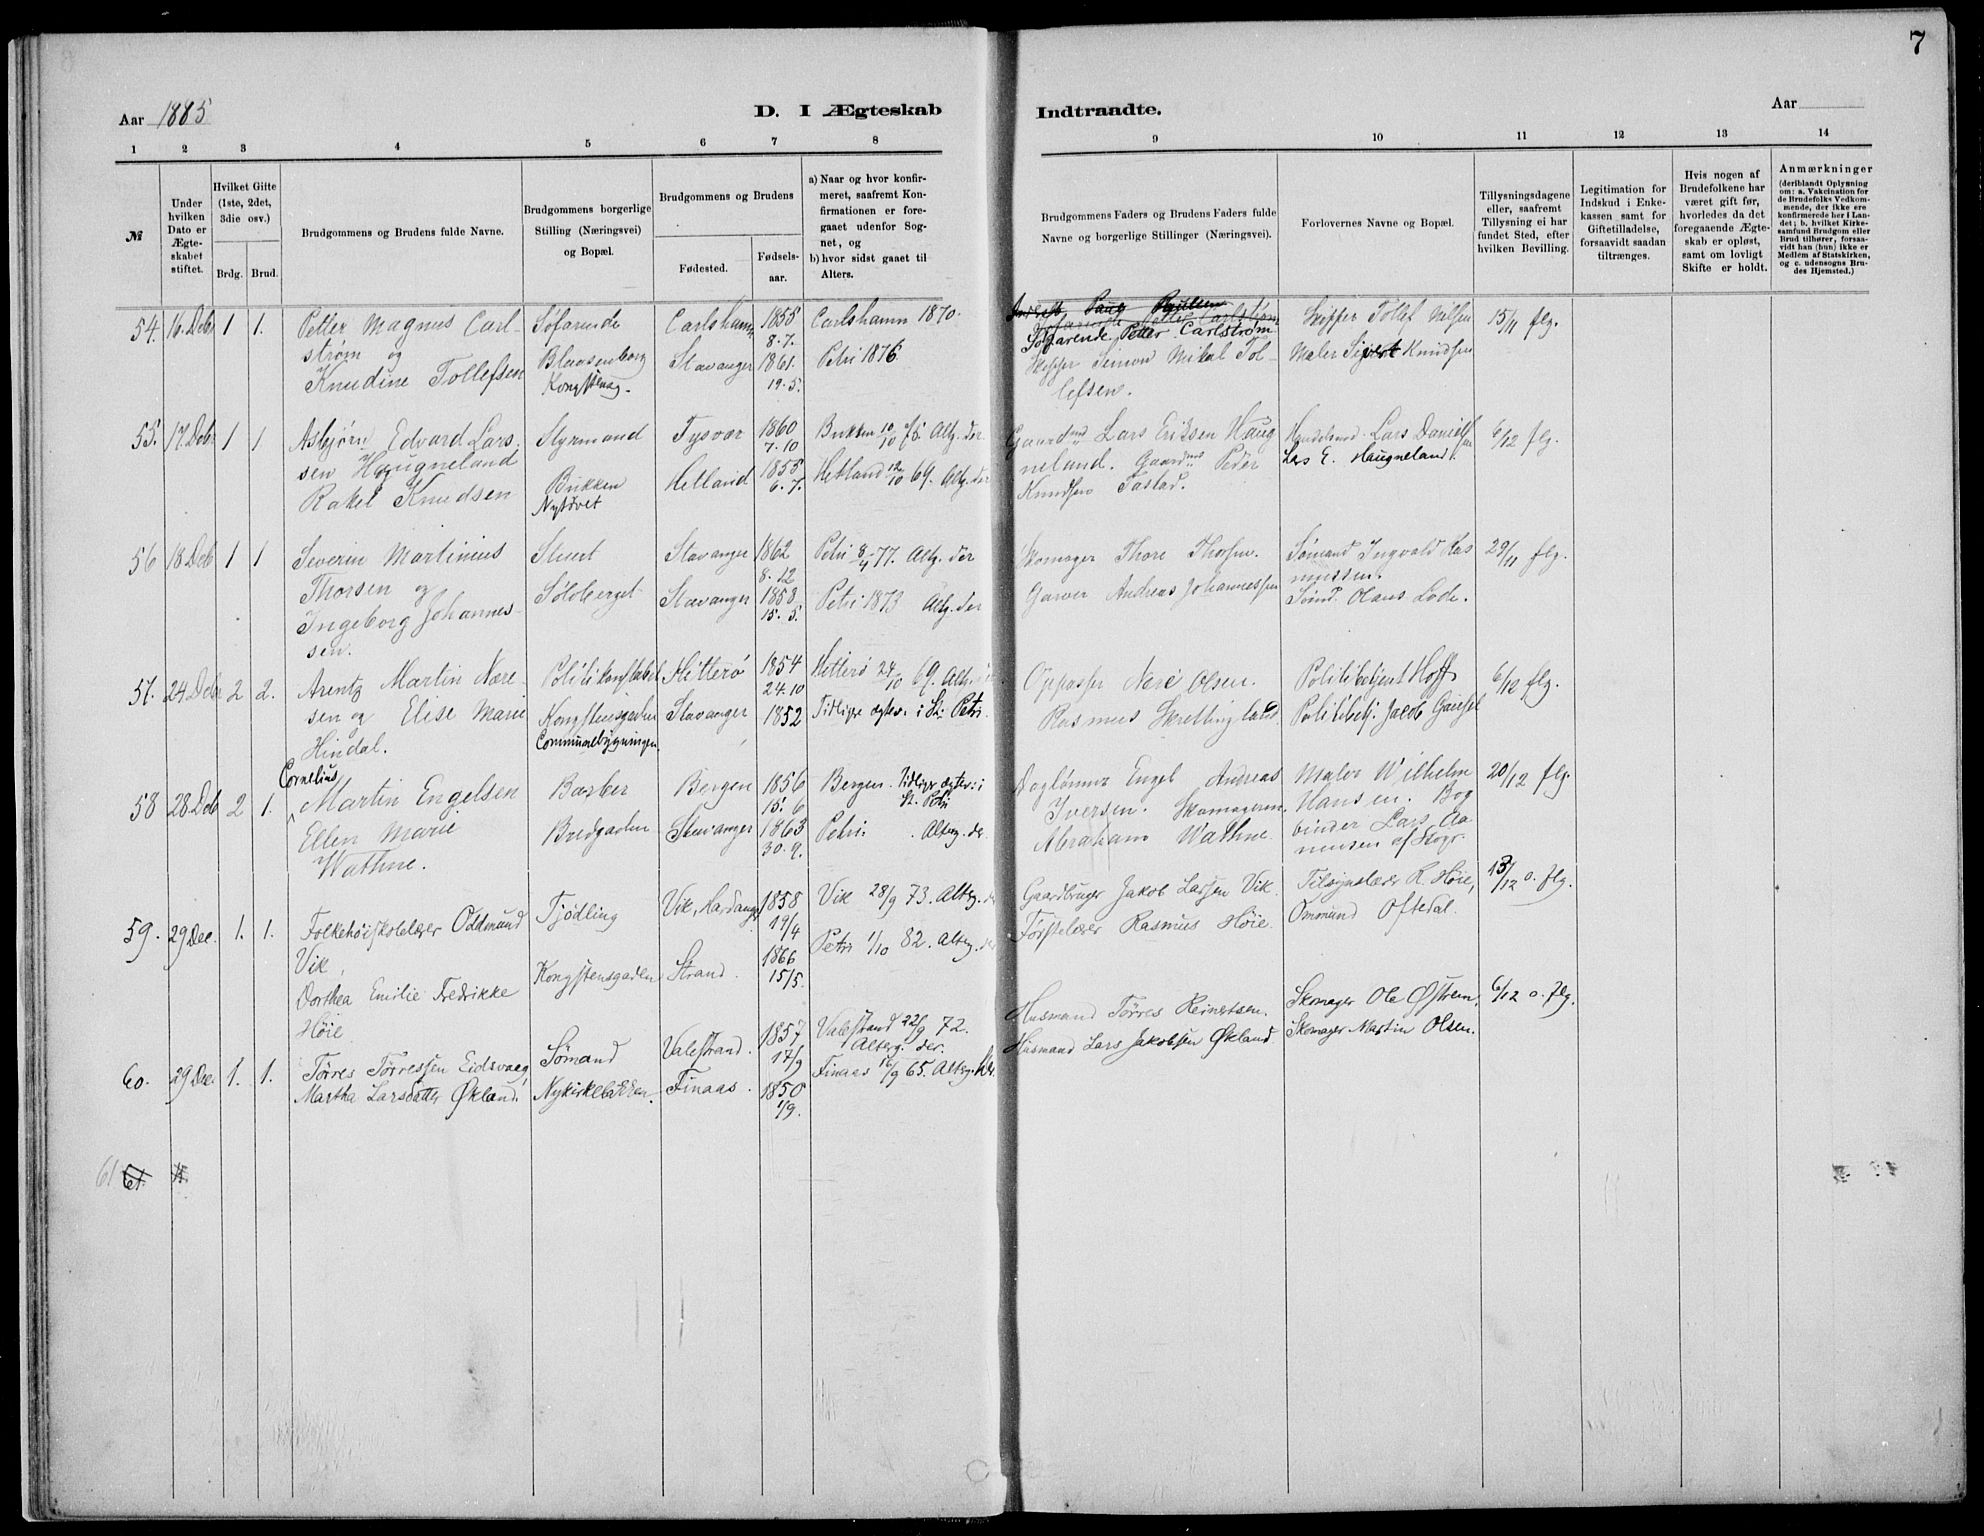 7
Aar 1885
D. I Ægteskab
Indtraadte.
Aar
1 2 3 4 5 6 7 8 9 10 11 12 13 14
№
Under
hvilken
Dato er
Ægte-
skabet
stiftet.
Hvilket Gifte
(1ste, 2det,
3die osv.)
Brdg. Brud.
Brudgommens og Brudens fulde Navne.
Brudgommens borgerlige
Stilling (Næringsvei)
og Bopæl.
Brudgommens og Brudens
Fødested.
Fødsels-
aar.
a) Naar og hvor konfir-
meret, saafremt Kon-
firmationen er fore-
gaaet udenfor Sog-
net, og
b) hvor sidst gaaet til
Alters.
Brudgommens Faders og Brudens Faders fulde
Navne og borgerlige Stillinger (Næringsvei).
Forlovernes Navne og Bopæl.
Tillysningsdagene
eller, saafremt
Tillysning ei har
fundet Sted, efter
hvilken Bevilling.
Legitimation for
Indskud i Enke-
kassen samt for
Giftetilladelse,
forsaavidt saadan
tiltrænges.
Hvis nogen af
Brudefolkene har
været gift før,
hvorledes da det
foregaaende Ægte-
skab er opløst,
samt om lovligt
Skifte er holdt.
Anmærkninger
(deriblandt Oplysning
om: a. Vakcination for
de Brudefolks Vedkom-
mende, der ikke ere
konfirmerede her i Lan-
det; b. hvilket Kirke-
samfund Brudgom eller
Brud tilhører, forsaa-
vidt han (hun) ikke er
Medlem af Statskirken,
og c. udensogns Bru-
des Hjemsted.)
54. 16. Debr 1 1.
Petter Magnus Carl-
strøm og
Knudine Tollefsen
Søfarende
Blaasenborg
Kongstenag.
Carlshamn
Stavanger
1855
8.7.
1861.
19.5.
Carlshamn 1870.
Petri 1876
Paulsen
Søfarende Petter Carlstrøm
Skipper Simon Mikal Tol-
lefsen.
Skipper Tollef Nilsen
Maler Sivert Knudsen
15/11 flg.
55. 17. Debr 1 1.
Asbjørn Edvard Lars-
sen Haugneland
Rakel Knudsen
Styrmand
Bukken
Nytorvet
Tysvær
Helland
1860
7.10
1855
6.7.
Bukken 10/10 75. Altg. der
Hetland 12/10 69. Altg. der
Gaardmd Lars Eriksen Haug
neland. Gaardmd Peder
Knudsen Tastad.
Handelsmd. Lars Danielsen
Lars E. Haugneland.
6/12 flg.
56 18 Deb 1 1
Severin Martinius
Thorsen og
Ingeborg Johannes-
sen.
Stuert
Sølvberget
Stavanger
Stavanger
1862
8.12
1858
15.5.
Petri 8/4 77. Altg. der
Petri 1873 Altg. der
Skomager Thore Thorsen.
Garver Andreas Johannessen
Sømand Ingvald Ras
mussen.
Sømd. Olaus Lode.
29/11 flg.
57. 24 Debr 2 2.
Arentz Martin Nære-
sen og Elise Marie
Hindal.
Politikonstabel
Kongstensgaden
Communebygningen.
Hitterø
Stavanger
1854
24.10
1852
Hitterø 24/10 69. Altg.
Tidligre ægtev. i St. Petri.
Oppasser Neri Olsen.
Rasmus Skrettingland
Politibetjent Hoff
Politibetj. Jacob Gausel
6/12 flg.
58 28 Deb 2 1.
Cornelius
Martin Engelsen
Ellen Marie
Wathne.
Barber
Bredgaden
Bergen
Stavanger
1856
15.6
1863
30.9.
Bergen. Tidligre ægtev. i
St. Petri
Petri. Alterg. der.
Daglønner Engel Andreas
Iversen. Skomageren
Abraham Wathne
Maler Wilhelm
Hansen. Bog
binder Lars Aa
nensen af Stogr.
20/12 flg.
59. 29 Dec. 1. 1.
Folkehøiskolelærer Oddmund
Vik,
Dorthea Emilie Fredrikke
Høie
Tjødling
Kongstensgaden
Vik, Hardanger
Strand.
1858
19/4
1866
15/5.
Vik 28/9 73. Alterg. der
Petri 1/10 82. Alterg. der
Gaardbruger Jakob Larsen Vik.
Førstelærer Rasmus Høie.
Tilsynslærer R. Høie,
Ommund Oftedal.
13/12 o. flg.
60. 29 Dec. 1. 1.
Tørres Tørressen Eidsvaag,
Martha Larsdatter Økland.
Sømand
Nykirkebakken.
Valestrand.
Finaas.
1857
17/9
1850
1/9.
Valestrand 22/9 72.
Alterg. der.
Finaas 16/9 65. Alterg. der.
Husmand Tørres Reinertsen.
Husmand Lars Jakobsen Økland.
Skomager Ole Østrem.
Skomager Martin Olsen.
6/12 o. flg.
61 61.